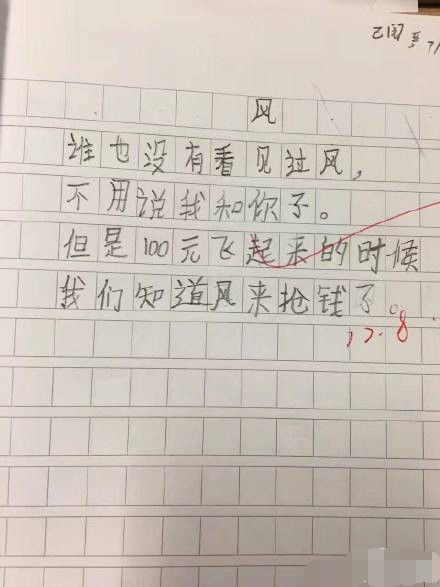 风
谁也没有看见过风，
不用说我和你了。
但是100元飞起来的时候
我们知道风来抢钱了。
17.8